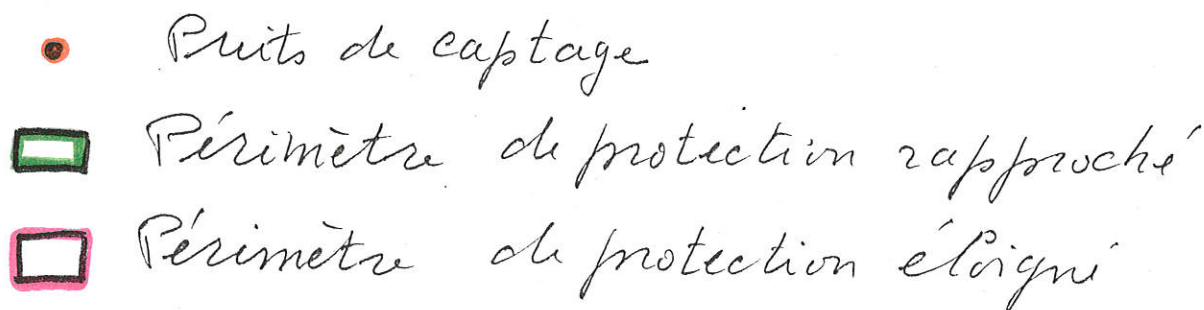 Puits de captage
Périmètre de protection rapproché
Périmètre de protection éloigné